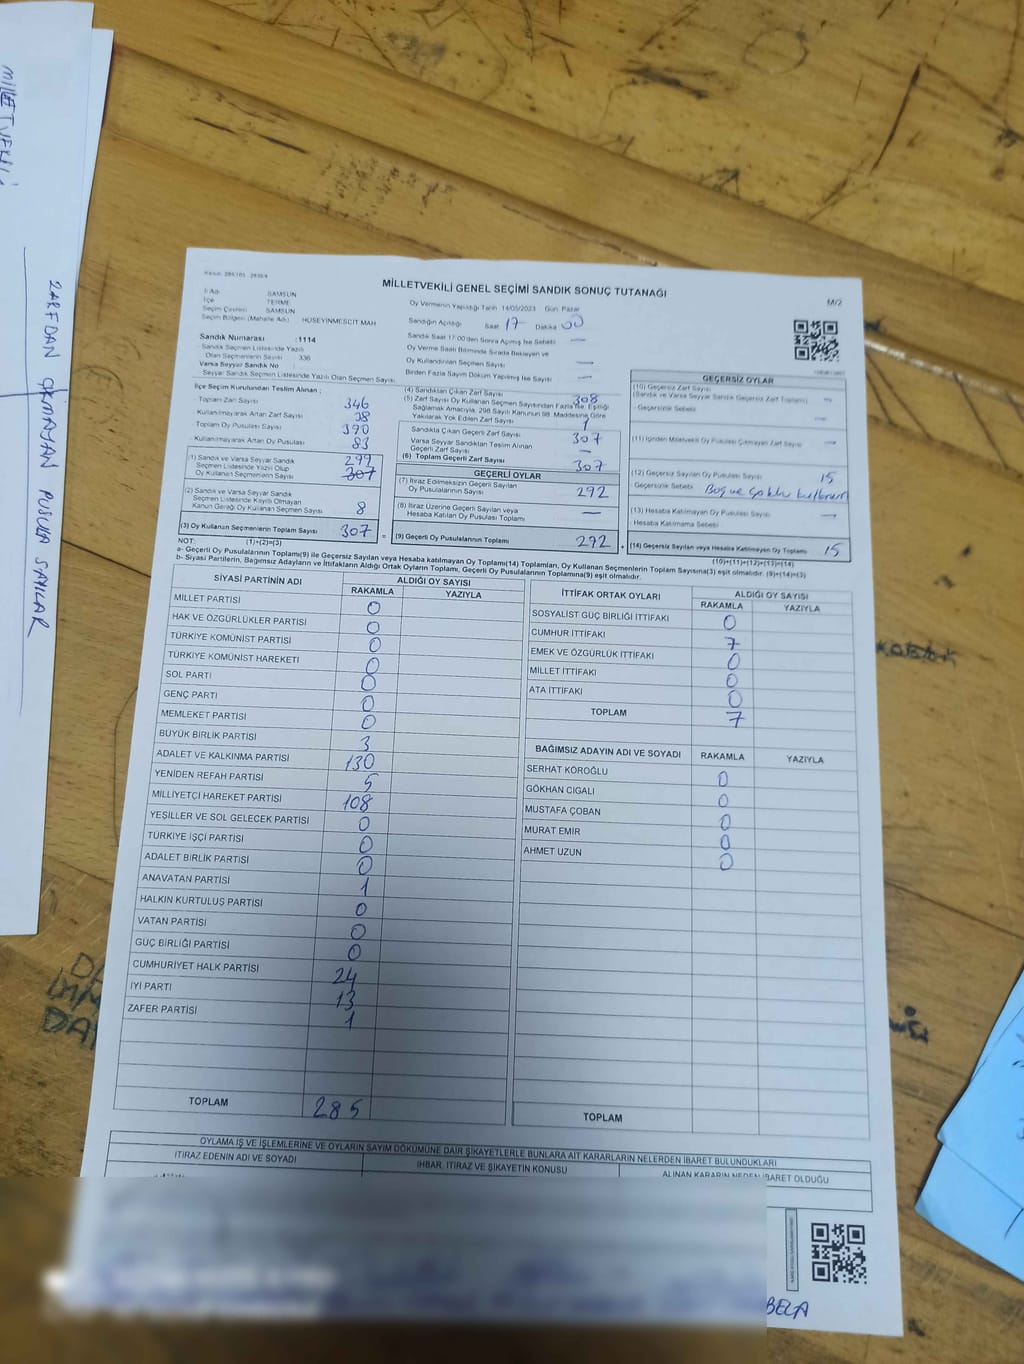 MİLLETVEKİLİ
ZARFDAN ÇIKMAYAN PUSULA SAYILAR
MİLLETVEKİLİ GENEL SEÇİMİ SANDIK SONUÇ TUTANAĞI
M/2
İl Adı SAMSUN
İlçe TERME
Seçim Çevresi SAMSUN
Seçim Bölgesi (Mahalle Adı) : HÜSEYİNMESCİT MAH
Oy Vermenin Yapıldığı Tarih 14/05/2023 Gün Pazar
Sandığın Açıldığı Saat 17 Dakika 00
Sandık Saat 17:00'den Sonra Açılmış İse Sebebi —
Oy Verme Saati Bitiminde Sırada Bekleyen ve
Oy Kullandırılan Seçmen Sayısı —
Birden Fazla Sayım Döküm Yapılmış İse Sayısı —
Sandık Numarası : 1114
Sandık Seçmen Listesinde Yazılı
Olan Seçmenlerin Sayısı : 336
Varsa Seyyar Sandık No
Seyyar Sandık Seçmen Listesinde Yazılı Olan Seçmen Sayısı
İlçe Seçim Kurulundan Teslim Alınan ;
Toplam Zarf Sayısı 346
Kullanılmayarak Artan Zarf Sayısı 38
Toplam Oy Pusulası Sayısı 390
Kullanılmayarak Artan Oy Pusulası 83
(1) Sandık ve Varsa Seyyar Sandık 299
Seçmen Listesinde Yazılı Olup
Oy Kullanan Seçmenlerin Sayısı 307
(2) Sandık ve Varsa Seyyar Sandık
Seçmen Listelerinde Kayıtlı Olmayan
Kanun Gereği Oy Kullanan Seçmen Sayısı 8
(3) Oy Kullanan Seçmenlerin Toplam Sayısı 307
(1)+(2)=(3)
(4) Sandıktan Çıkan Zarf Sayısı 308
(5) Zarf Sayısı Oy Kullanan Seçmen Sayısından Fazla ise, Eşitliği
Sağlamak Amacıyla, 298 Sayılı Kanunun 98. Maddesine Göre
Yakılarak Yok Edilen Zarf Sayısı 1
Sandıkta Çıkan Geçerli Zarf Sayısı 307
Varsa Seyyar Sandıktan Teslim Alınan
Geçerli Zarf Sayısı —
(6) Toplam Geçerli Zarf Sayısı 307
GEÇERLİ OYLAR
(7) İtiraz Edilmeksizin Geçerli Sayılan
Oy Pusulalarının Sayısı 292
(8) İtiraz Üzerine Geçerli Sayılan veya
Hesaba Katılan Oy Pusulası Toplamı —
= (9) Geçerli Oy Pusulalarının Toplamı 292
GEÇERSİZ OYLAR
(10) Geçersiz Zarf Sayısı
(Sandık ve Varsa Seyyar Sandık Geçersiz Zarf Toplamı) —
Geçersizlik Sebebi —
(11) İçinden Milletvekili Oy Pusulası Çıkmayan Zarf Sayısı —
(12) Geçersiz Sayılan Oy Pusulası Sayısı 15
Geçersizlik Sebebi Boş ve çoklu kullanım
(13) Hesaba Katılmayan Oy Pusulası Sayısı —
Hesaba Katılmama Sebebi
+ (14) Geçersiz Sayılan veya Hesaba Katılmayan Oy Toplamı 15
(10)+(11)+(12)+(13)=(14)
NOT:
a- Geçerli Oy Pusulalarının Toplamı(9) ile Geçersiz Sayılan veya Hesaba katılmayan Oy Toplamı(14) Toplamları, Oy Kullanan Seçmenlerin Toplam Sayısına(3) eşit olmalıdır. (9)+(14)=(3)
b- Siyasi Partilerin, Bağımsız Adayların ve İttifakların Aldığı Ortak Oyların Toplamı, Geçerli Oy Pusulalarının Toplamına(9) eşit olmalıdır.
SİYASİ PARTİNİN ADI ALDIĞI OY SAYISI
RAKAMLA YAZIYLA
MİLLET PARTİSİ 0
HAK VE ÖZGÜRLÜKLER PARTİSİ 0
TÜRKİYE KOMÜNİST PARTİSİ 0
TÜRKİYE KOMÜNİST HAREKETİ 0
SOL PARTİ 0
GENÇ PARTİ 0
MEMLEKET PARTİSİ 0
BÜYÜK BİRLİK PARTİSİ 3
ADALET VE KALKINMA PARTİSİ 130
YENİDEN REFAH PARTİSİ 5
MİLLİYETÇİ HAREKET PARTİSİ 108
YEŞİLLER VE SOL GELECEK PARTİSİ 0
TÜRKİYE İŞÇİ PARTİSİ 0
ADALET BİRLİK PARTİSİ 0
ANAVATAN PARTİSİ 1
HALKIN KURTULUŞ PARTİSİ 0
VATAN PARTİSİ 0
GÜÇ BİRLİĞİ PARTİSİ 0
CUMHURİYET HALK PARTİSİ 24
İYİ PARTİ 13
ZAFER PARTİSİ 1
TOPLAM 285
İTTİFAK ORTAK OYLARI ALDIĞI OY SAYISI
RAKAMLA YAZIYLA
SOSYALİST GÜÇ BİRLİĞİ İTTİFAKI 0
CUMHUR İTTİFAKI 7
EMEK VE ÖZGÜRLÜK İTTİFAKI 0
MİLLET İTTİFAKI 0
ATA İTTİFAKI 0
TOPLAM 7
BAĞIMSIZ ADAYIN ADI VE SOYADI RAKAMLA YAZIYLA
SERHAT KÖROĞLU 0
GÖKHAN CIGALI 0
MUSTAFA ÇOBAN 0
MURAT EMİR 0
AHMET UZUN 0
TOPLAM
OYLAMA İŞ VE İŞLEMLERİNE VE OYLARIN SAYIM DÖKÜMÜNE DAİR ŞİKAYETLERLE BUNLARA AİT KARARLARIN NELERDEN İBARET BULUNDUKLARI
İTİRAZ EDENİN ADI VE SOYADI İHBAR, İTİRAZ VE ŞİKAYETİN KONUSU ALINAN KARARIN NEDEN İBARET OLDUĞU
BELA